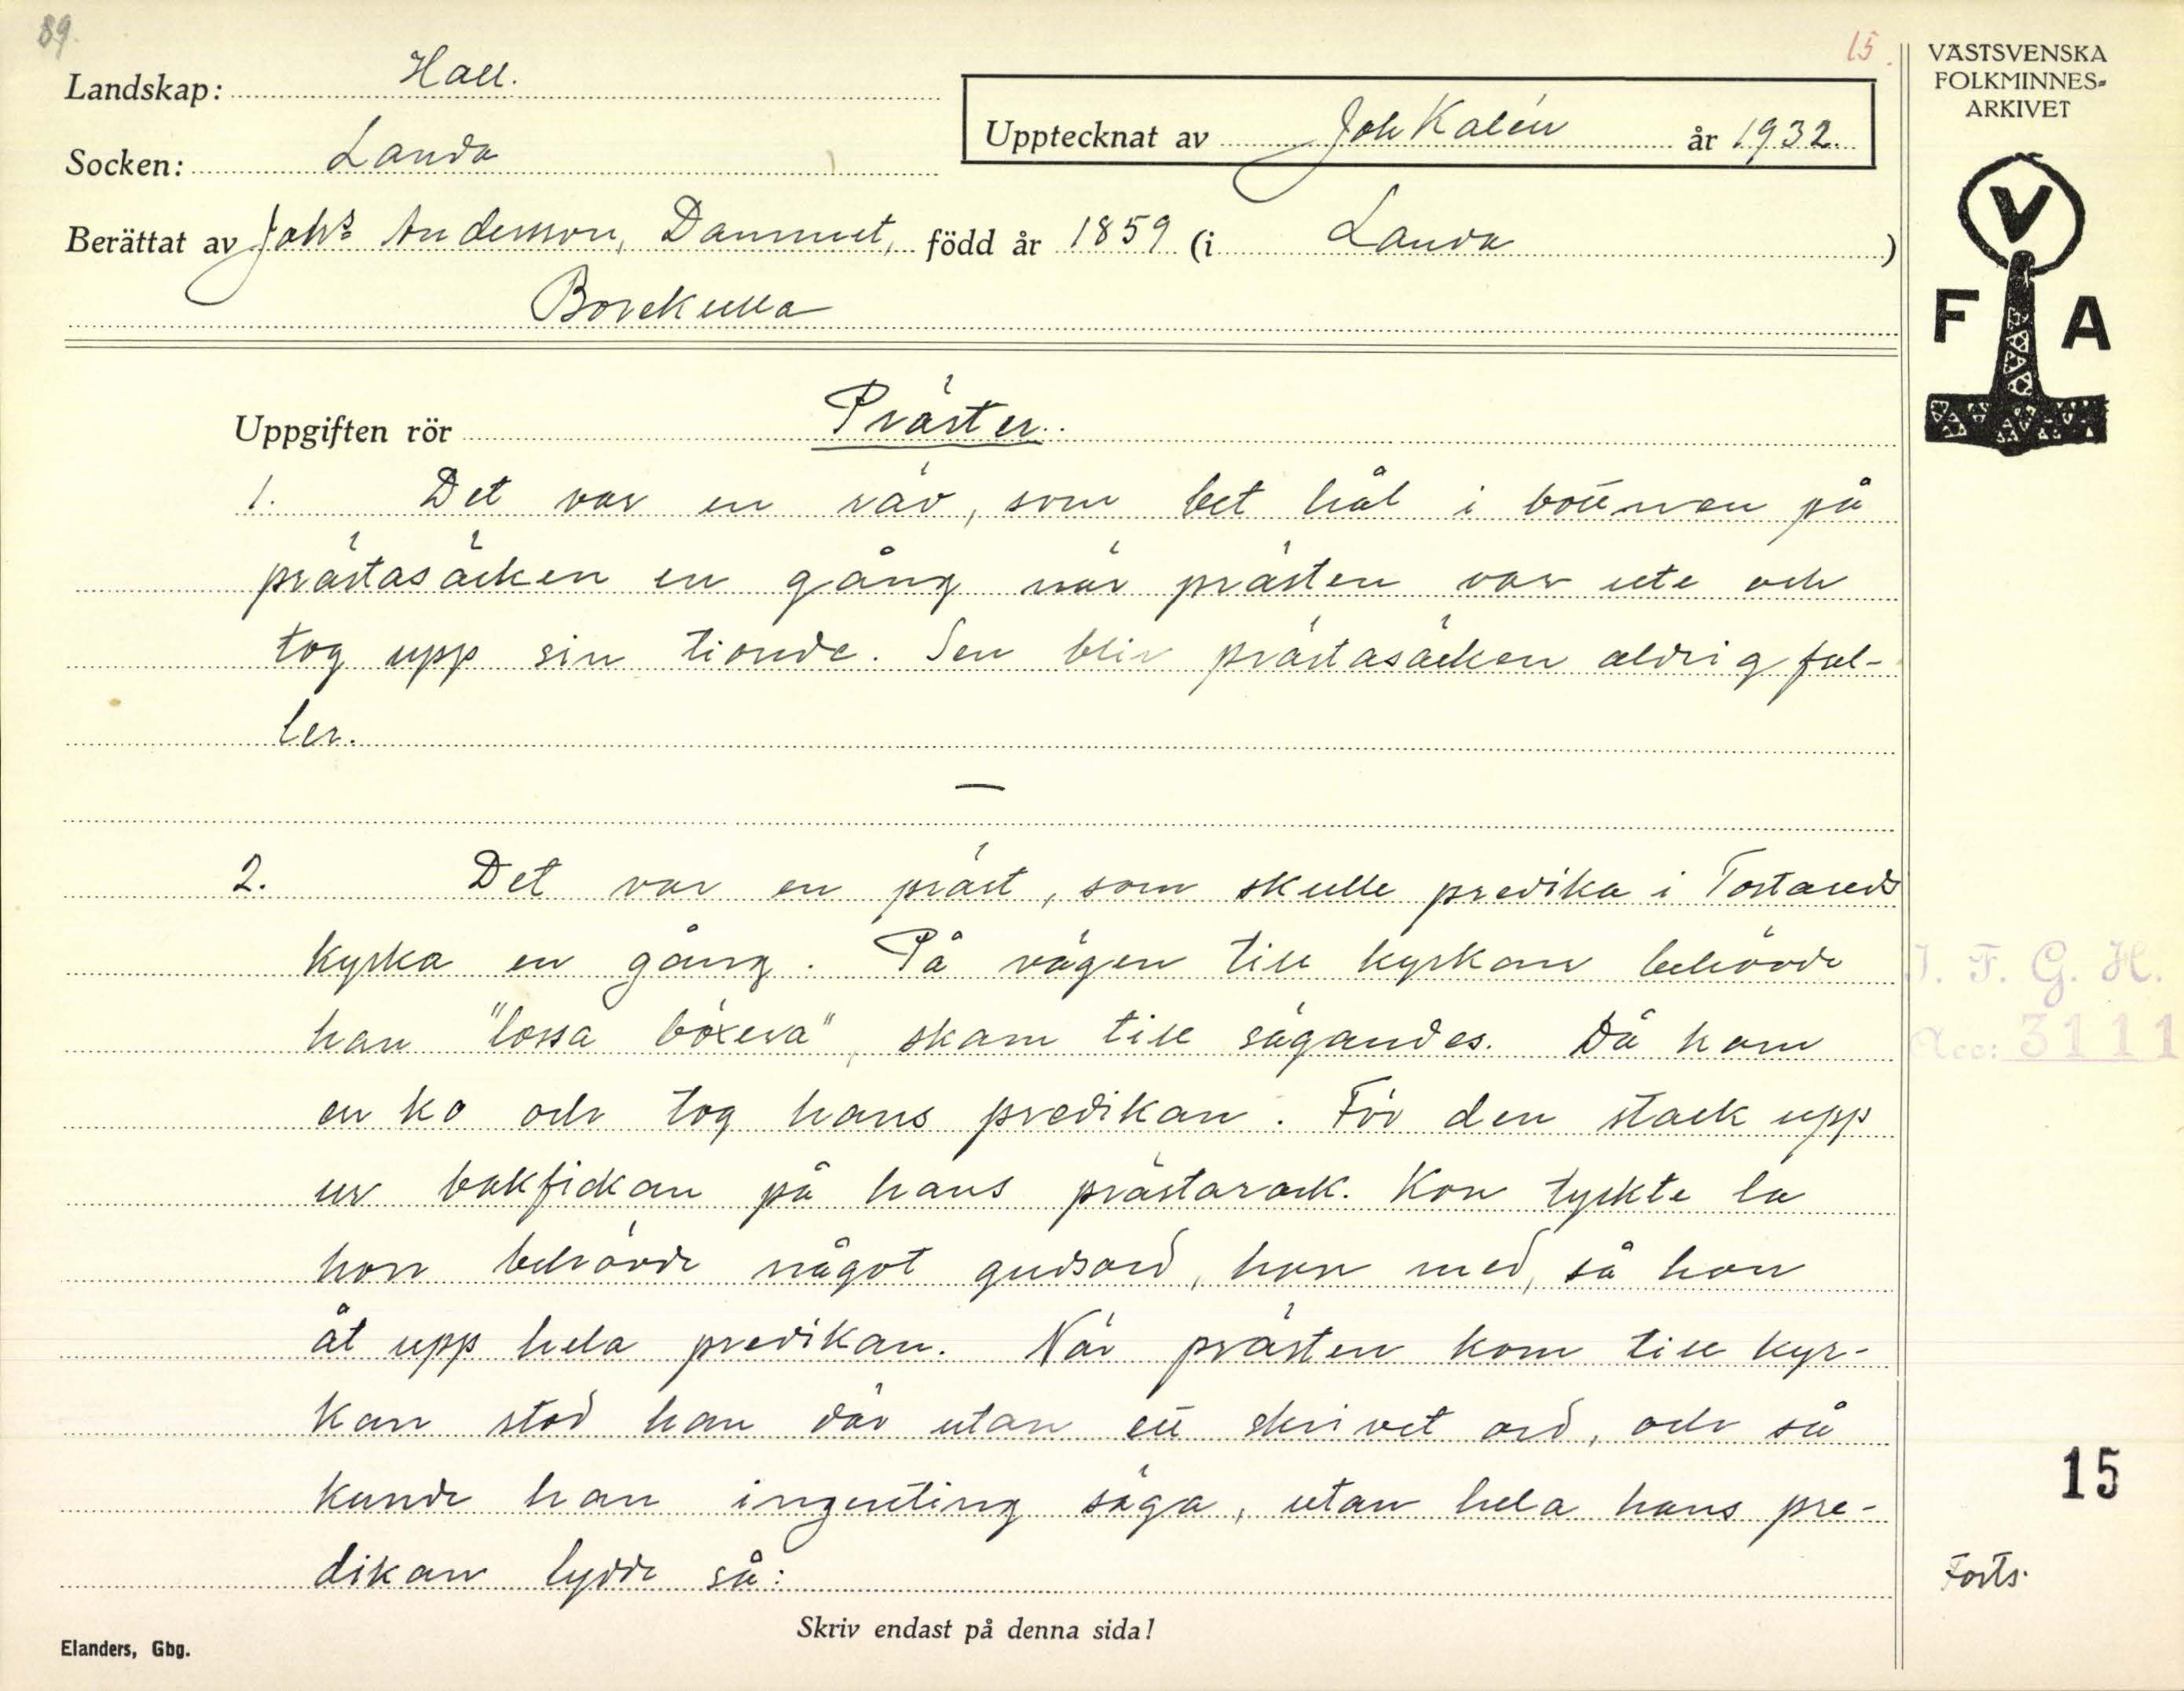 89.
15.
Landskap: Hall.
Socken: Landa
Upptecknat av Joh Kalén år 1932.
Berättat av Johs Andersson, Dammet, född år 1859 (i Landa)
Borekulla
VÄSTSVENSKA
FOLKMINNES-
ARKIVET
V
F A
Uppgiften rör Präster.
1. Det var en räv, som bet hål i bottnen på
prästasäcken en gång när prästen var ute och
tog upp sin tionde. Sen blir prästasäcken aldrig ful-
ler.
—
2. Det var en präst, som skulle predika i Tostareds
kyrka en gång. På vägen till kyrkan behövde
han "lossa böxera", skam till sägandes. Då kom
en ko och tog hans predikan. För den stack upp
ur bakfickan på hans prästarock. Kon tyckte la
hon behövde något gudsord, hon med, så hon
åt upp hela predikan. När prästen kom till kyr-
kan stod han där utan ett skrivet ord, och så
kunde han ingenting säga, utan hela hans pre-
dikan lydde så:
J. F. G. H.
Acc: 3111
15
Forts.
Skriv endast på denna sida!
Elanders, Gbg.